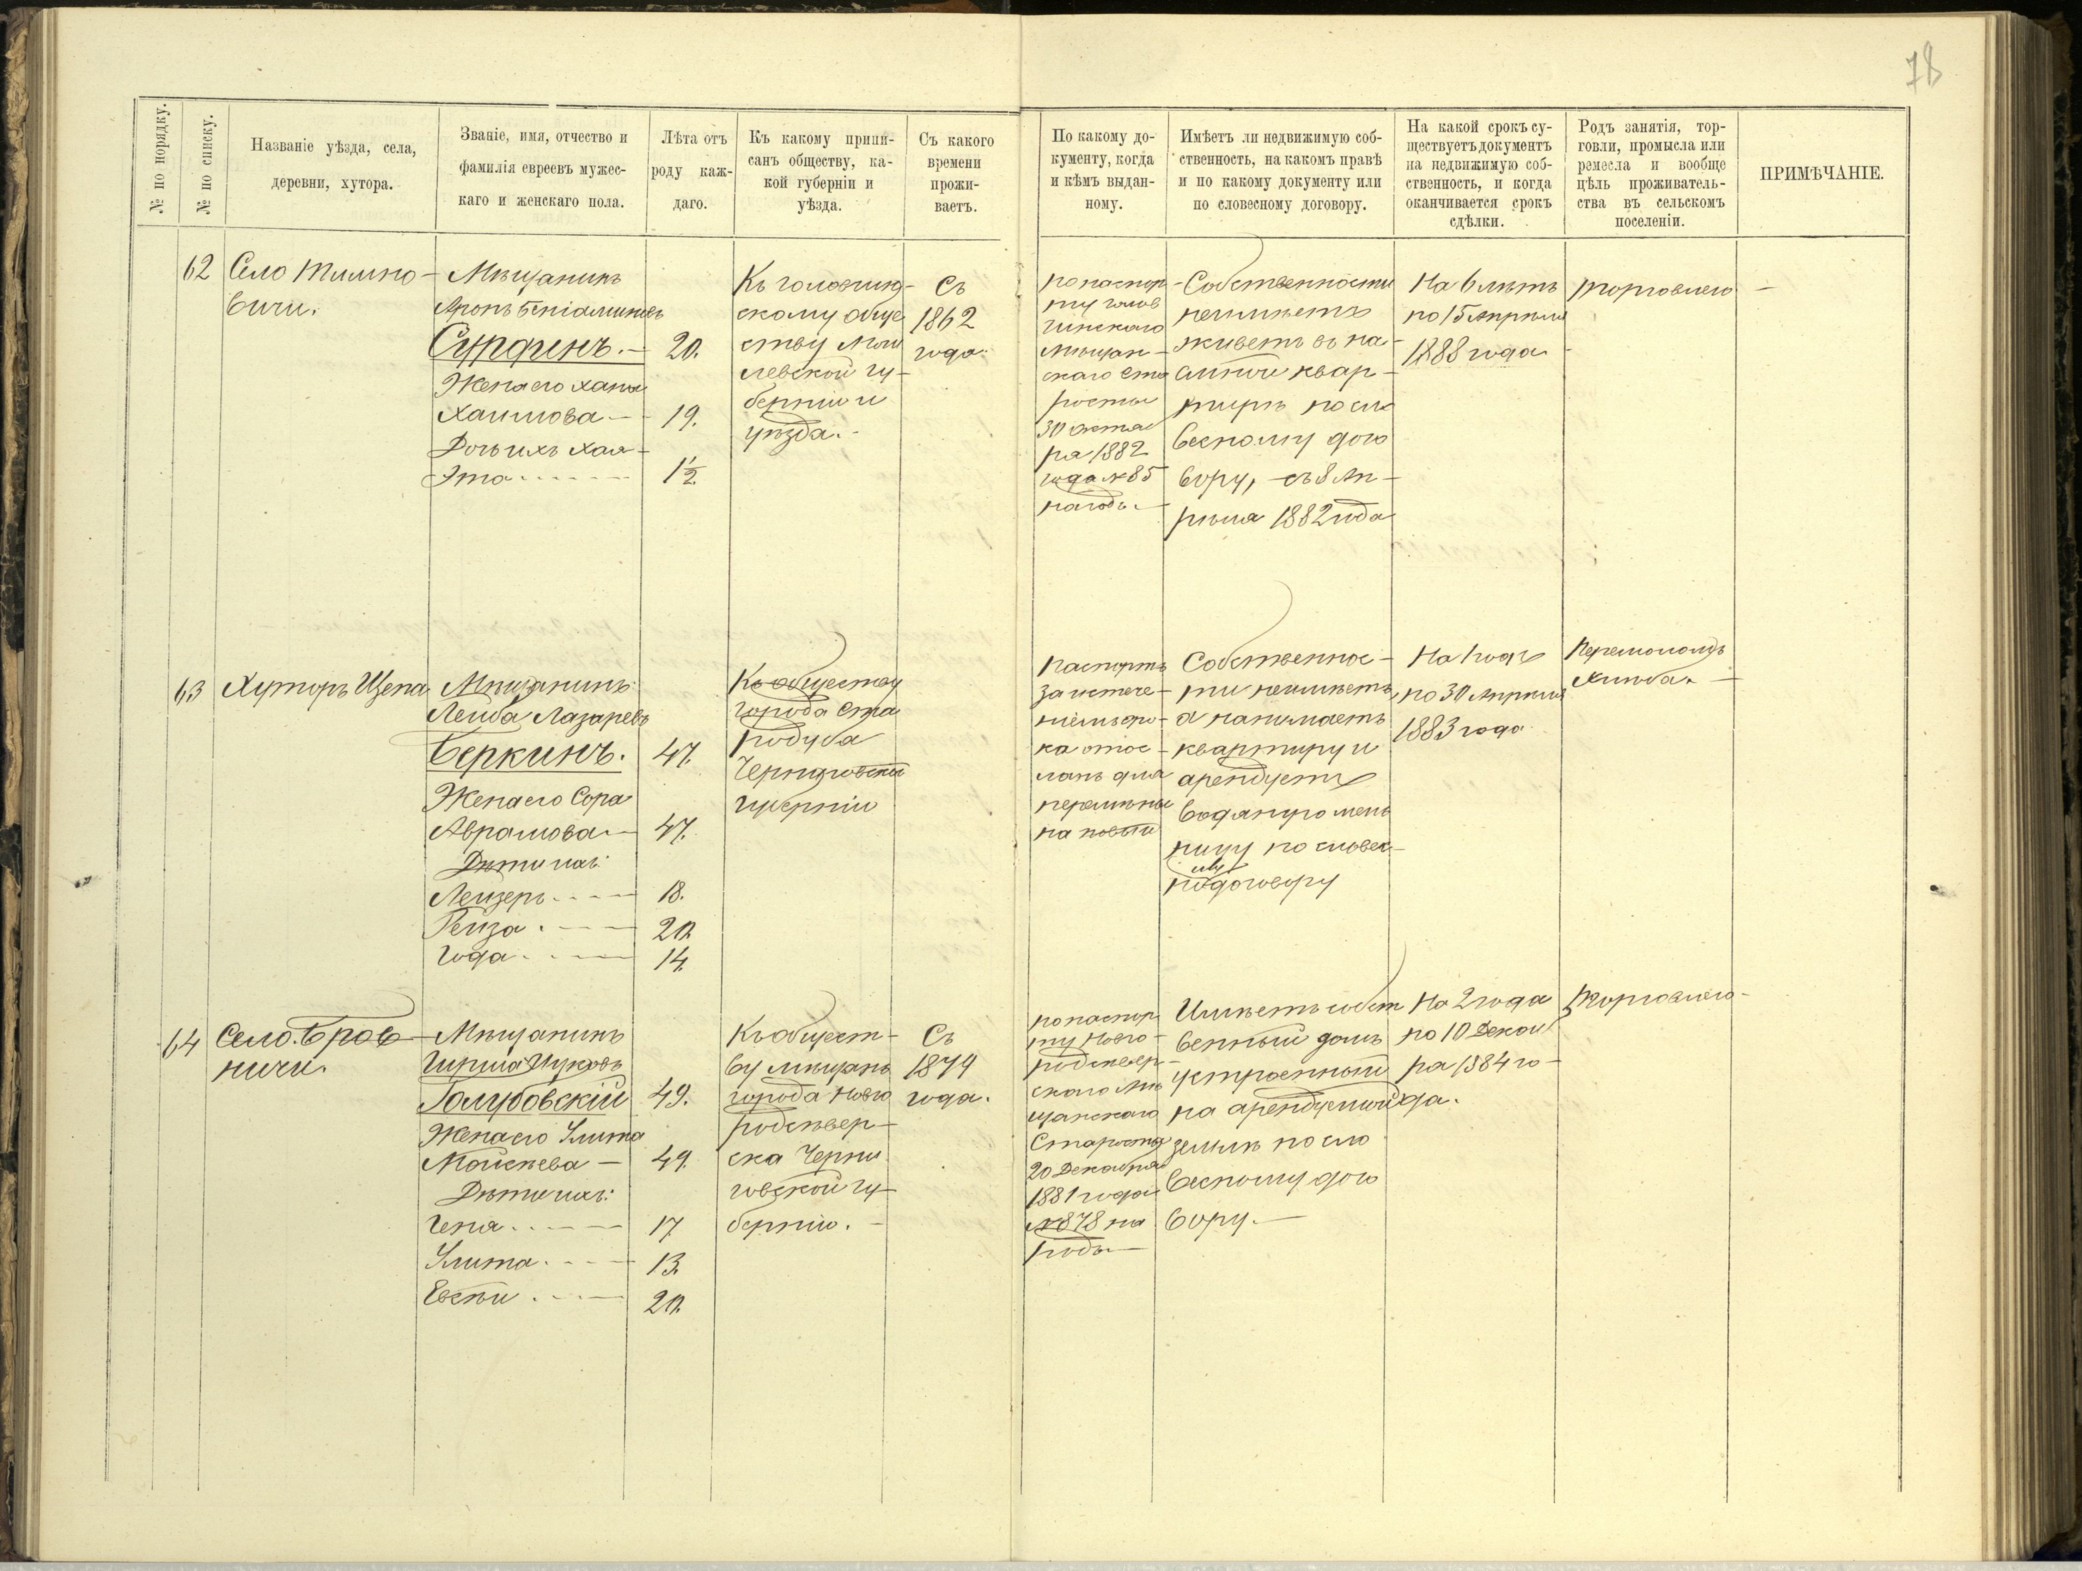 78
№ по порядку.
№ по списку.
Названіе уѣзда, села,
деревни, хутора.
Званіе, имя, отчество и
фамилія евреевъ мужес-
каго и женскаго пола.
Лѣта отъ
роду каж-
даго.
Къ какому припи-
санъ обществу, ка-
кой губерніи и
уѣзда.
Съ какого
времени
прожи-
ваетъ.
По какому до-
кументу, когда
и кѣмъ выдан-
ному.
Имѣетъ ли недвижимую соб-
ственность, на какомъ правѣ
и по какому документу или
по словесному договору.
На какой срокъ су-
ществуетъ документъ
на недвижимую соб-
ственность, и когда
оканчивается срокъ
сдѣлки.
Родъ занятія, тор-
говли, промысла или
ремесла и вообще
цѣль проживатель-
ства въ сельскомъ
поселеніи.
ПРИМѢЧАНІЕ.
62
Село Тимно-
вичи.
Мѣщанинъ
Аронъ Беніаминовъ
Сурфинъ. —
Жена его Хана
Хаимова —
Дочь ихъ Хая-
Эта
20.
19.
1½
скому обще
ству Моги
левской гу-
берніи и
уѣзда. -
Съ
1862
года.
по паспор
ту
мѣщан-
скаго ста
росты
30 Октяб
ря 1882
года № 85
на годъ. —
Собственности
неимѣетъ
живетъ въ на-
емной квар-
тирѣ по сло
весному дого
вору, съ 8 Ап-
рѣля 1882 года
На 6 лѣтъ
по 15 Апрѣля
1888 года
торговлею
63
Хуторъ Щепа
Мѣщанинъ
Лейба Лазаревъ
Беркинъ.
Жена его Сора
Абрамова —
Дѣти ихъ:
Лейзеръ
Рейза
Года
47.
47.
18.
20.
14.
Къ обществу
города Ста
родуба
Черниговской
губерніи
Паспортъ
за истече-
ніемъ сро-
ка отос-
ланъ для
перемѣны
на новый
Собственнос-
ти неимѣетъ,
а нанимаетъ
квартиру и
арендуетъ
водяную мель
ницу по словес-
ному договору
На 1 годъ
по 30 Апрѣля
1883 года
Перемоломъ
хлѣба.
64
Село Бров-
ничи.
Мѣщанинъ
Голубовскій
Жена его Улита
Мойсѣева —
Дѣти ихъ:
Геня
Улита
Евсѣй
49.
49.
17
13.
20.
Къ общест-
ву мѣщанъ
города Новго
родсѣвер-
ска Черни
говской гу-
берніи. —
Съ
1879
года.
по паспор
ту Новго-
родсѣвер-
скаго мѣ
щанскаго
Старосты
20 Декабря
1881 года
№ 878 на
годъ —
Имѣетъ собст
венный домъ
устроенный
на арендуемой
землѣ по сло
весному дого
вору. —
На 2 года
по 10 Декаб
ря 1884 го-
да.
Торговлею-